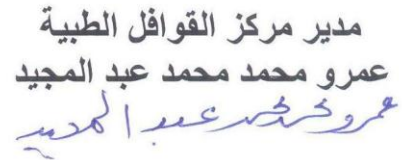 مدير مركز القوافل الطبية
عمرو محمد محمد عبد المجيد
عمرو محمد محمد عبد المجيد